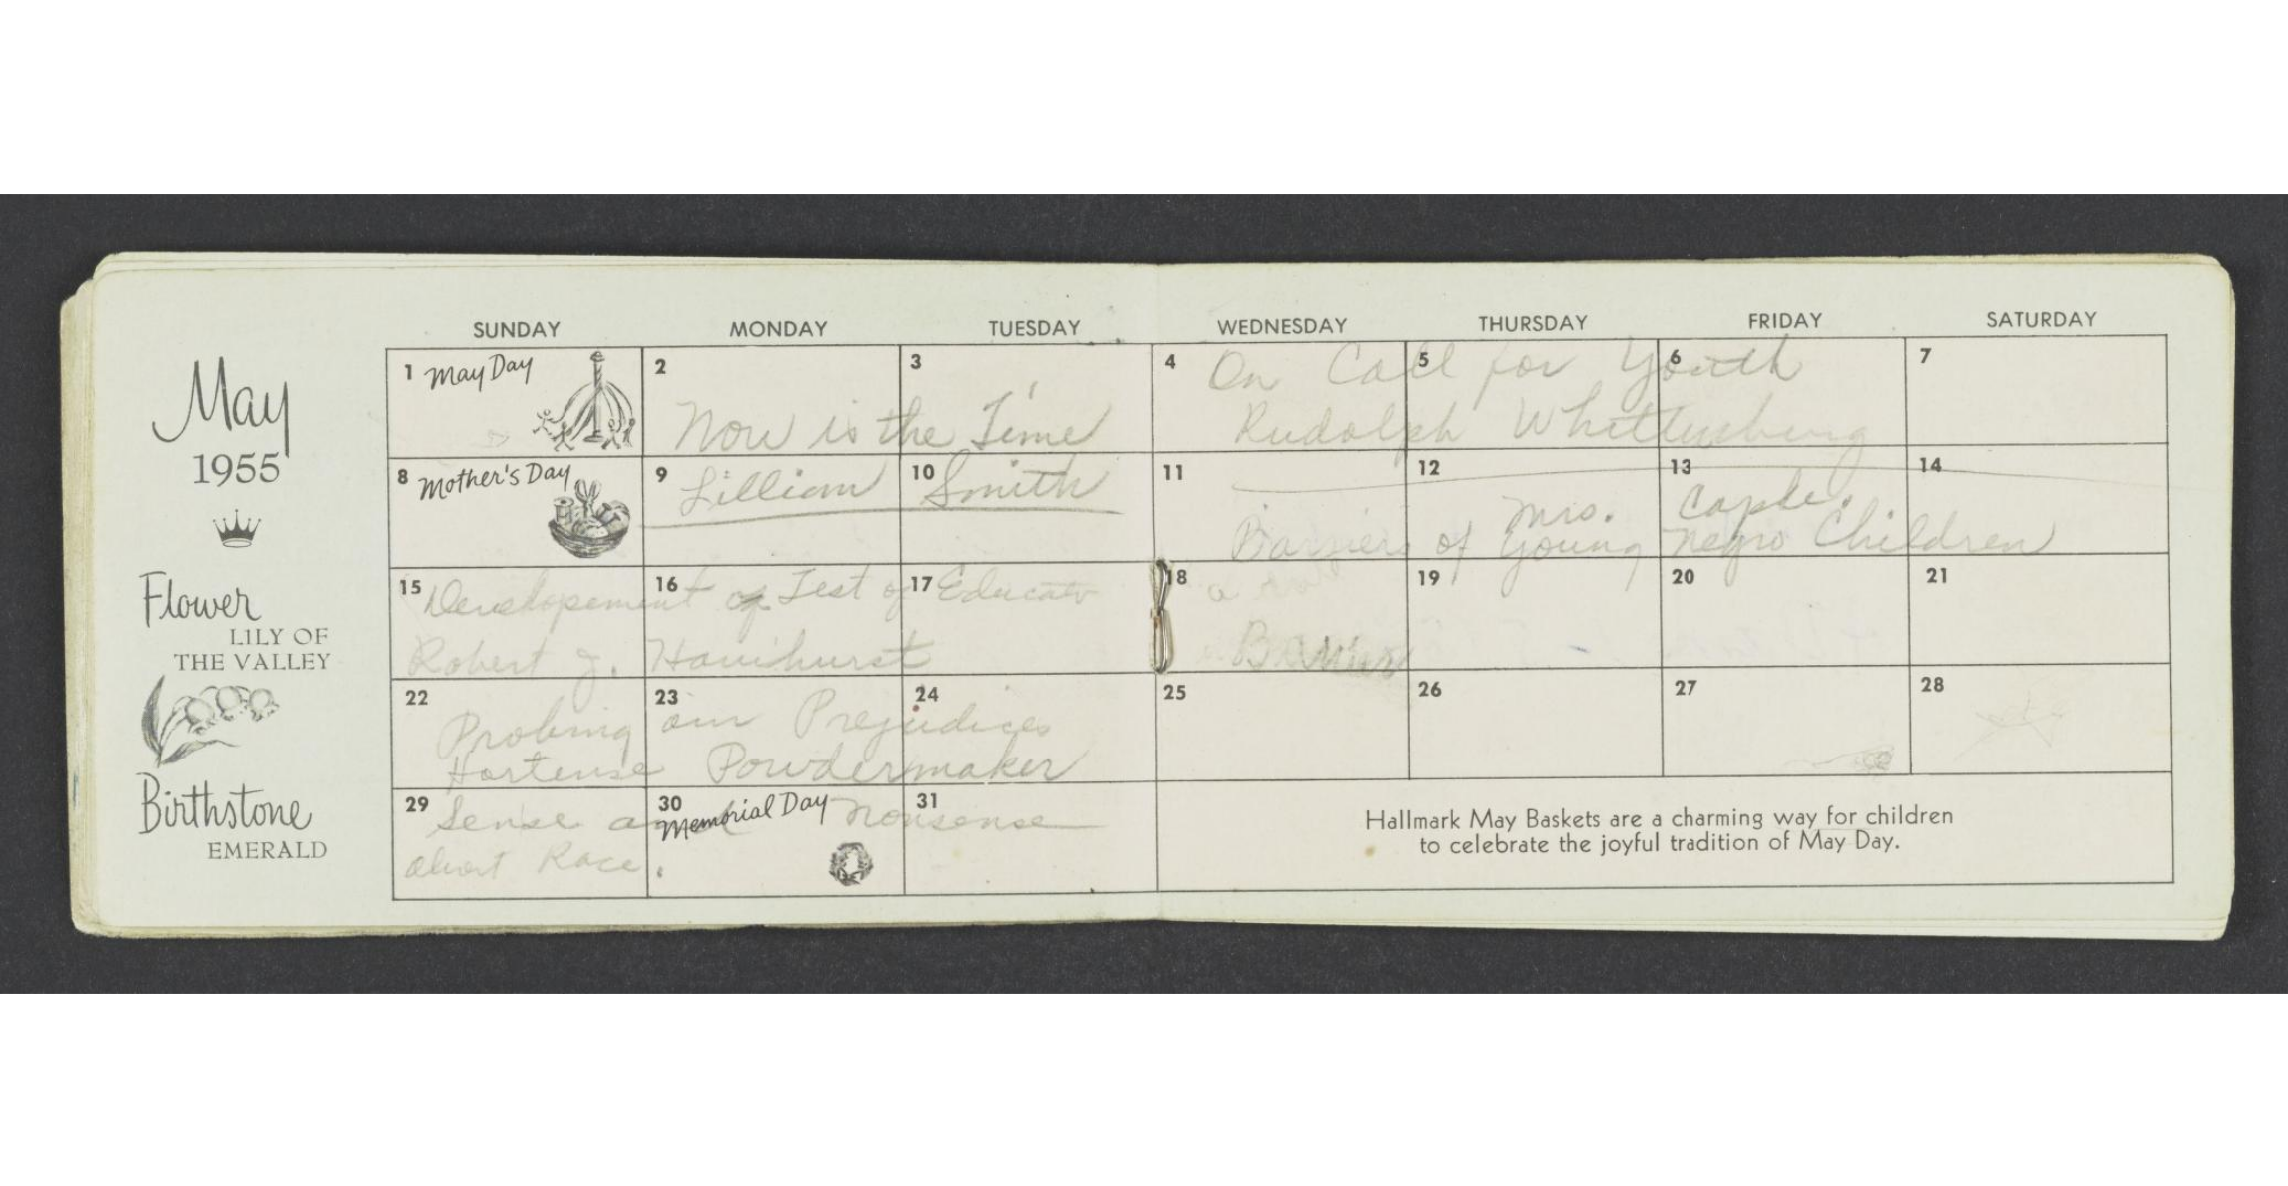 May
1955
Flower
LILY OF
THE VALLEY
Birthstone
EMERALD
SUNDAY MONDAY TUESDAY WEDNESDAY THURSDAY FRIDAY SATURDAY
1 May Day 2 3 4 5 6 7
Now is the Time
On Call for Youth
Rudolph
8 Mother's Day 9 10 11 12 13 14
Lillian Smith
Mrs.
Barriers of Young Negro Children
15 16 17 18 19 20 21
Developement of Test of Educatv
Robert J.
a
22 23 24 25 26 27 28
Probing our Prejudices
Hortense Powdermaker
29 30 Memorial Day 31
Sense and Nonsense
about Race.
Hallmark May Baskets are a charming way for children
to celebrate the joyful tradition of May Day.